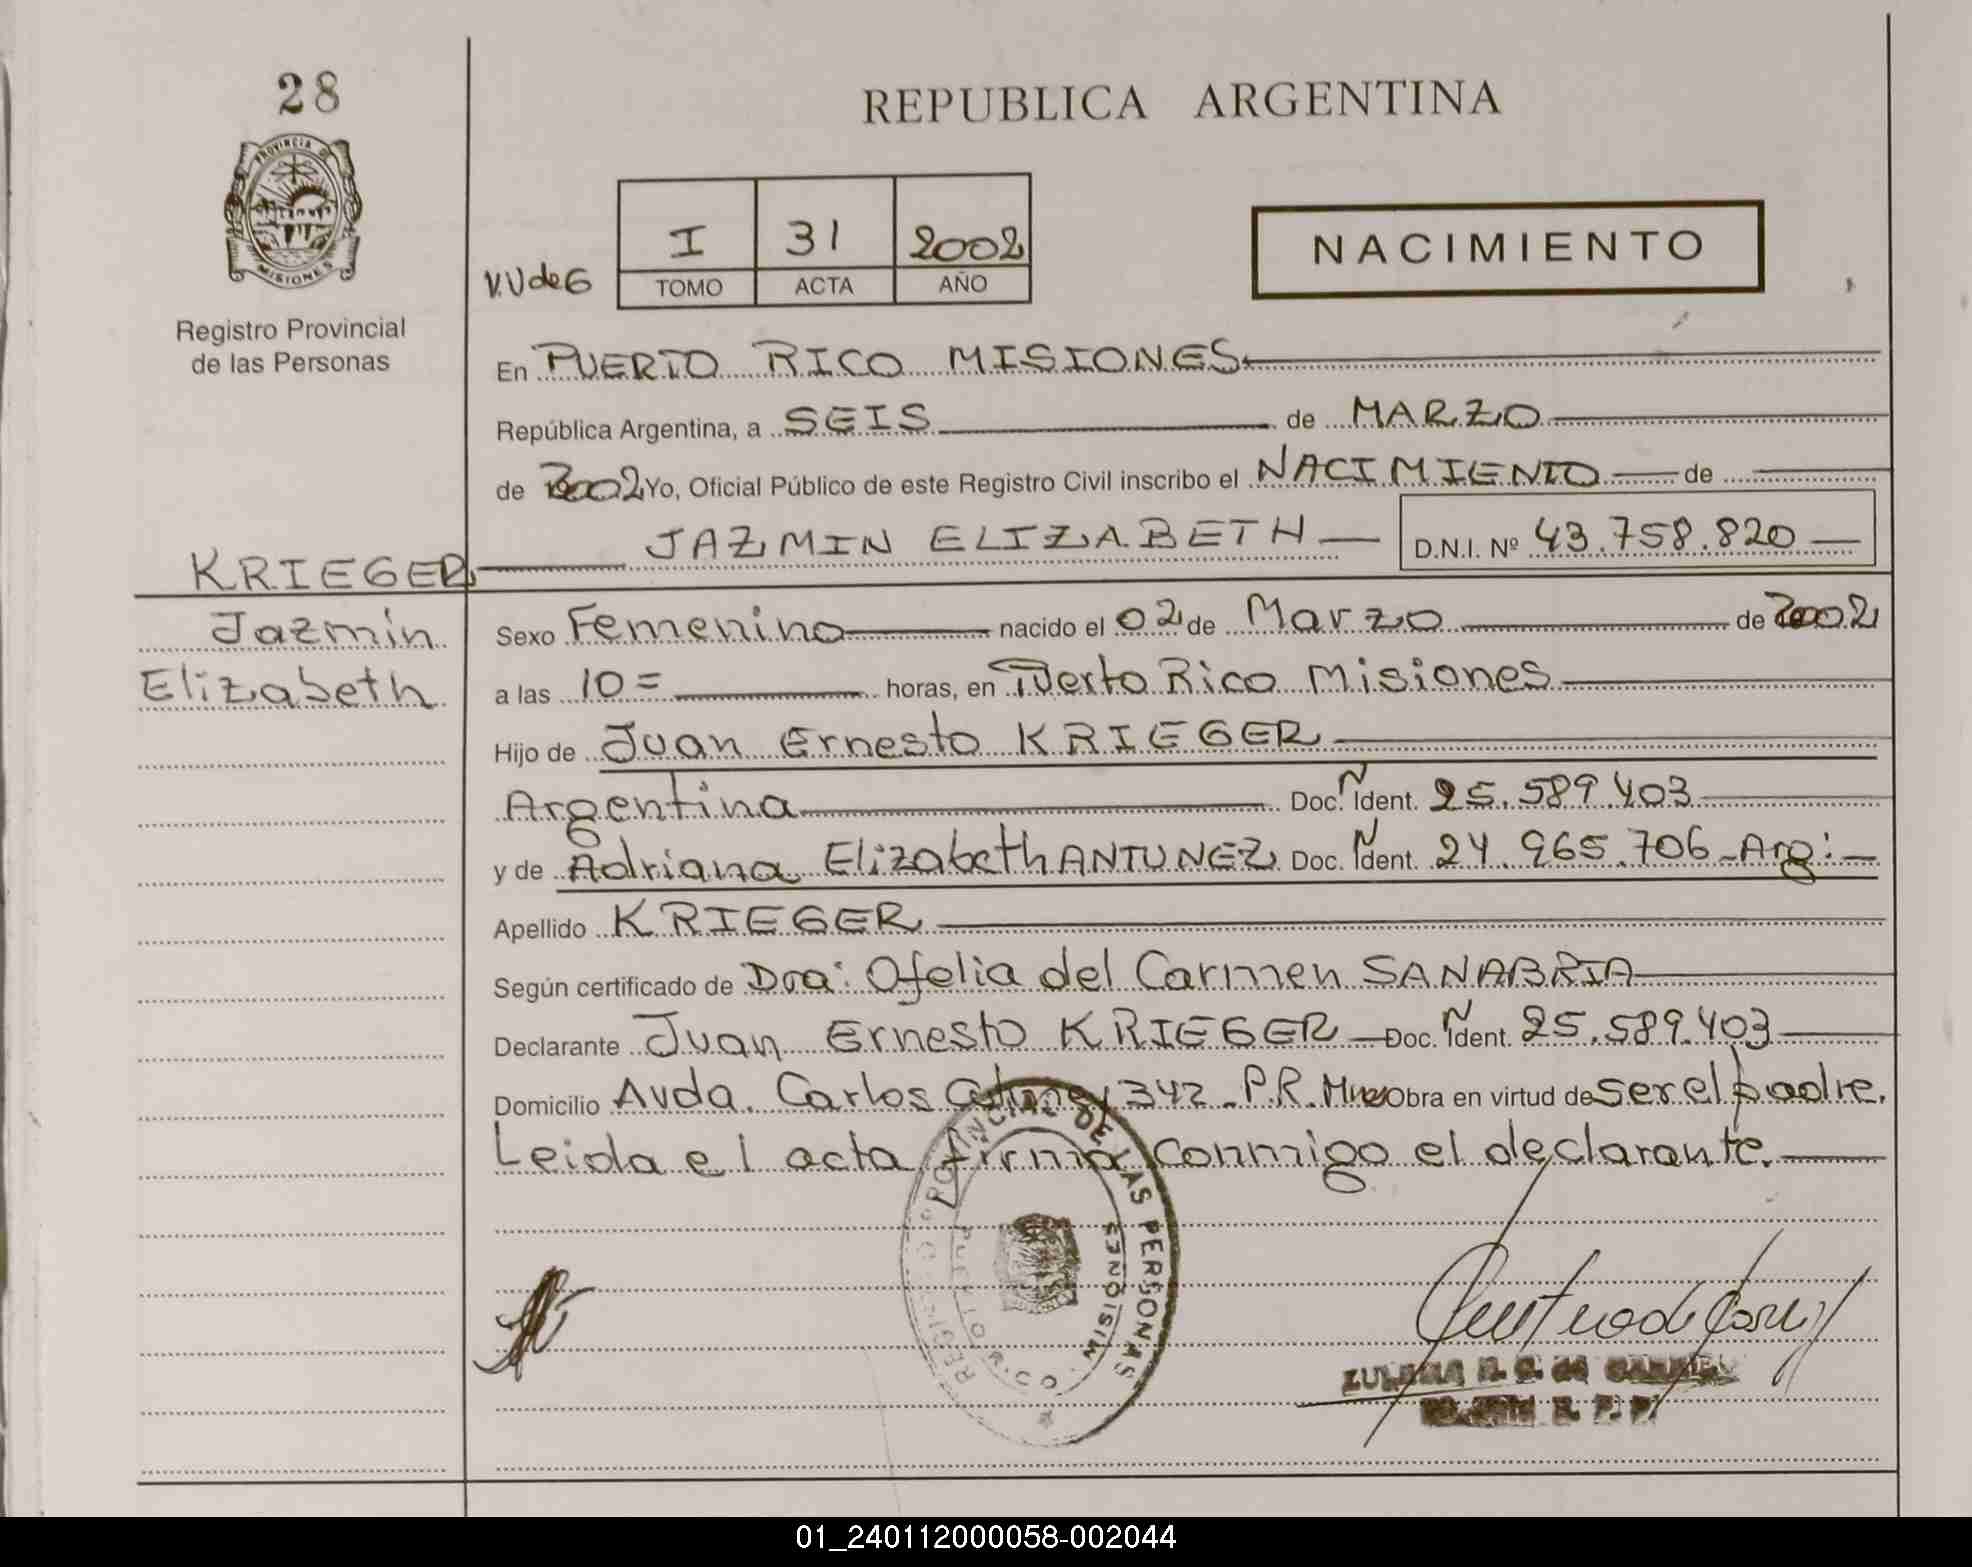 28
REPUBLICA ARGENTINA
PROVINCIA DE
MISIONES
Registro Provincial
de las Personas
V.V de G
I 31 2002
TOMO ACTA AÑO
NACIMIENTO
En PUERTO RICO MISIONES
República Argentina, a SEIS de MARZO
de 2002 Yo, Oficial Público de este Registro Civil inscribo el NACIMIENTO de
JAZMIN ELIZABETH D.N.I. Nº 43.758.820
KRIEGER
Jazmín
Elizabeth
Sexo Femenino nacido el 02 de Marzo de 2002
a las 10= horas, en Puerto Rico Misiones
Hijo de Juan Ernesto KRIEGER
Argentina Doc. Ñ Ident. 25.589.403
y de Adriana Elizabeth ANTUNEZ Doc. Ñ Ident. 24.965.706 - Arg:
Apellido KRIEGER
Según certificado de Dra: Ofelia del Carmen SANABRIA
Declarante Juan Ernesto KRIEGER Doc. Ñ Ident. 25.589.403
Domicilio Avda. Carlos 1342 - P.R. Mnes Obra en virtud de ser el padre.
Leida el acta, firma conmigo el declarante.
REGISTRO PROVINCIAL DE LAS PERSONAS
PUERTO RICO MISIONES
01_240112000058-002044